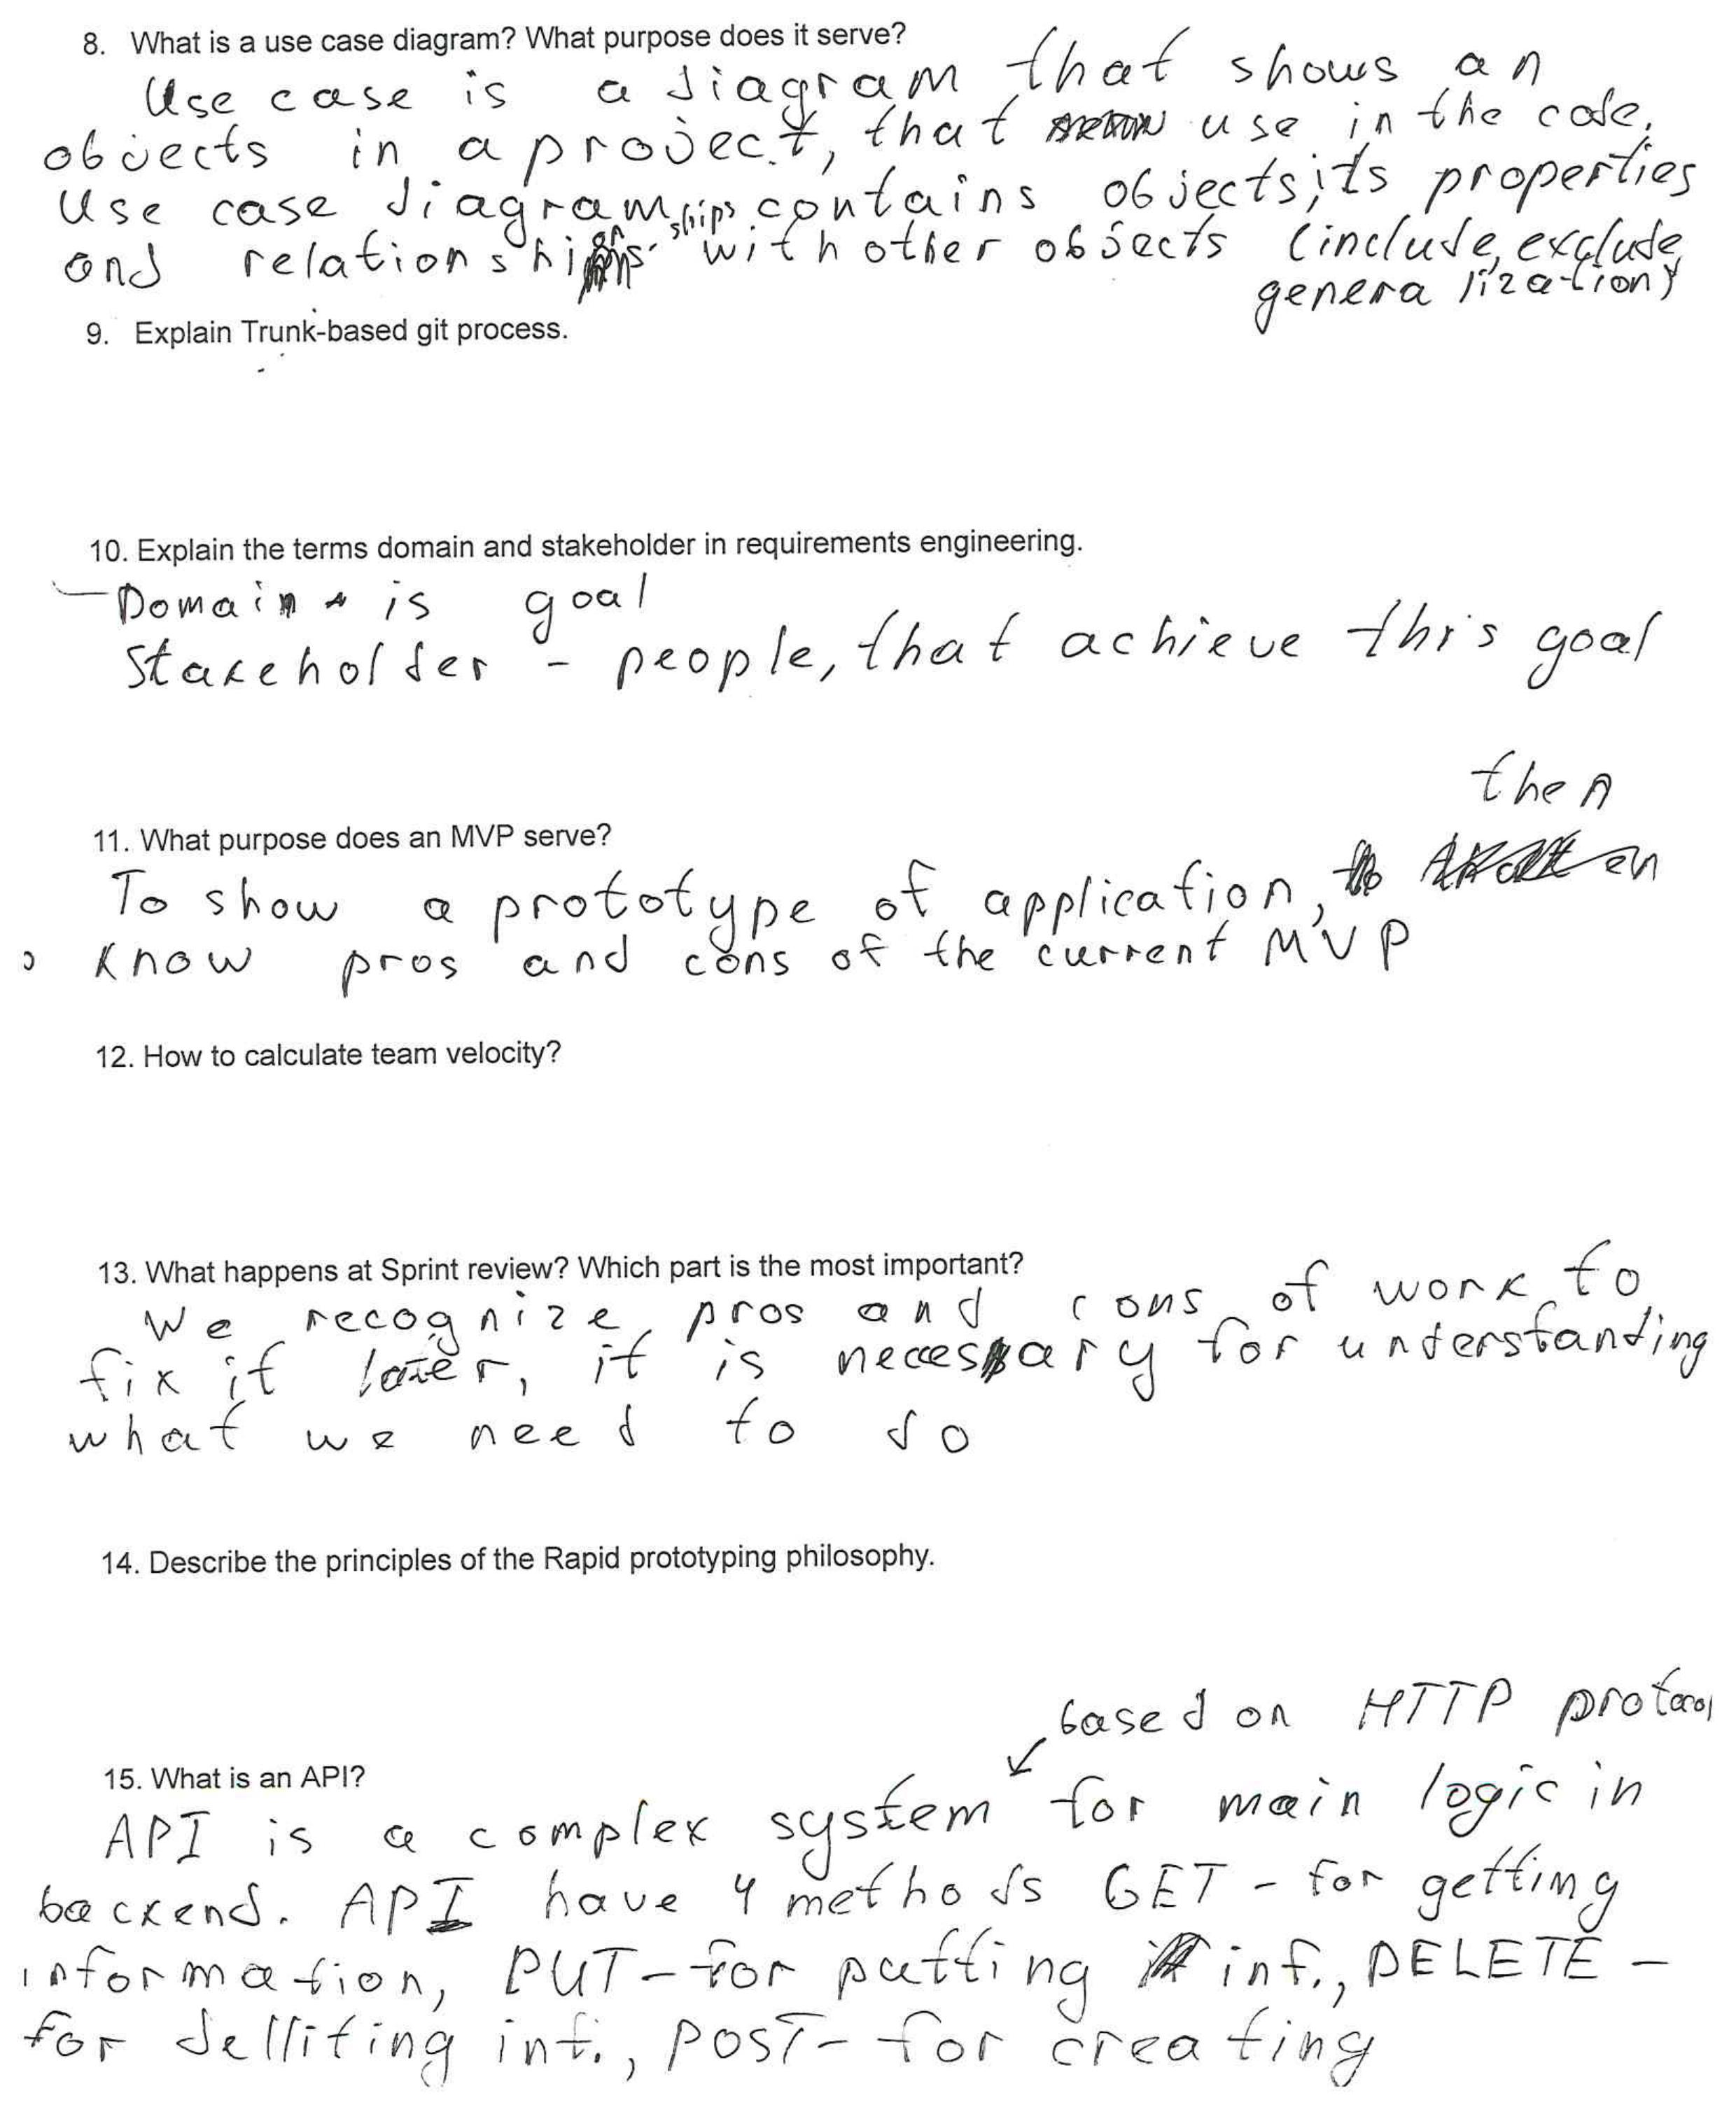 8. What is a use case diagram? What purpose does it serve?
Use case is a diagram that shows an
objects in a project, that use in the code.
Use case diagram contains objects, its properties
and relationships with other objects (include, exclude,
generalization)
9. Explain Trunk-based git process.
10. Explain the terms domain and stakeholder in requirements engineering.
Domain is goal
Stakeholder - people, that achieve this goal
then
11. What purpose does an MVP serve?
To show a prototype of application,
know pros and cons of the current MVP
12. How to calculate team velocity?
13. What happens at Sprint review? Which part is the most important?
We recognize pros and cons of work to
fix it later, it is necessary for understanding
what we need to do
14. Describe the principles of the Rapid prototyping philosophy.
based on HTTP protocol
15. What is an API?
API is a complex system for main logic in
backend. API have 4 methods GET - for getting
information, PUT - for putting inf., DELETE -
for delliting inf., POST - for creating